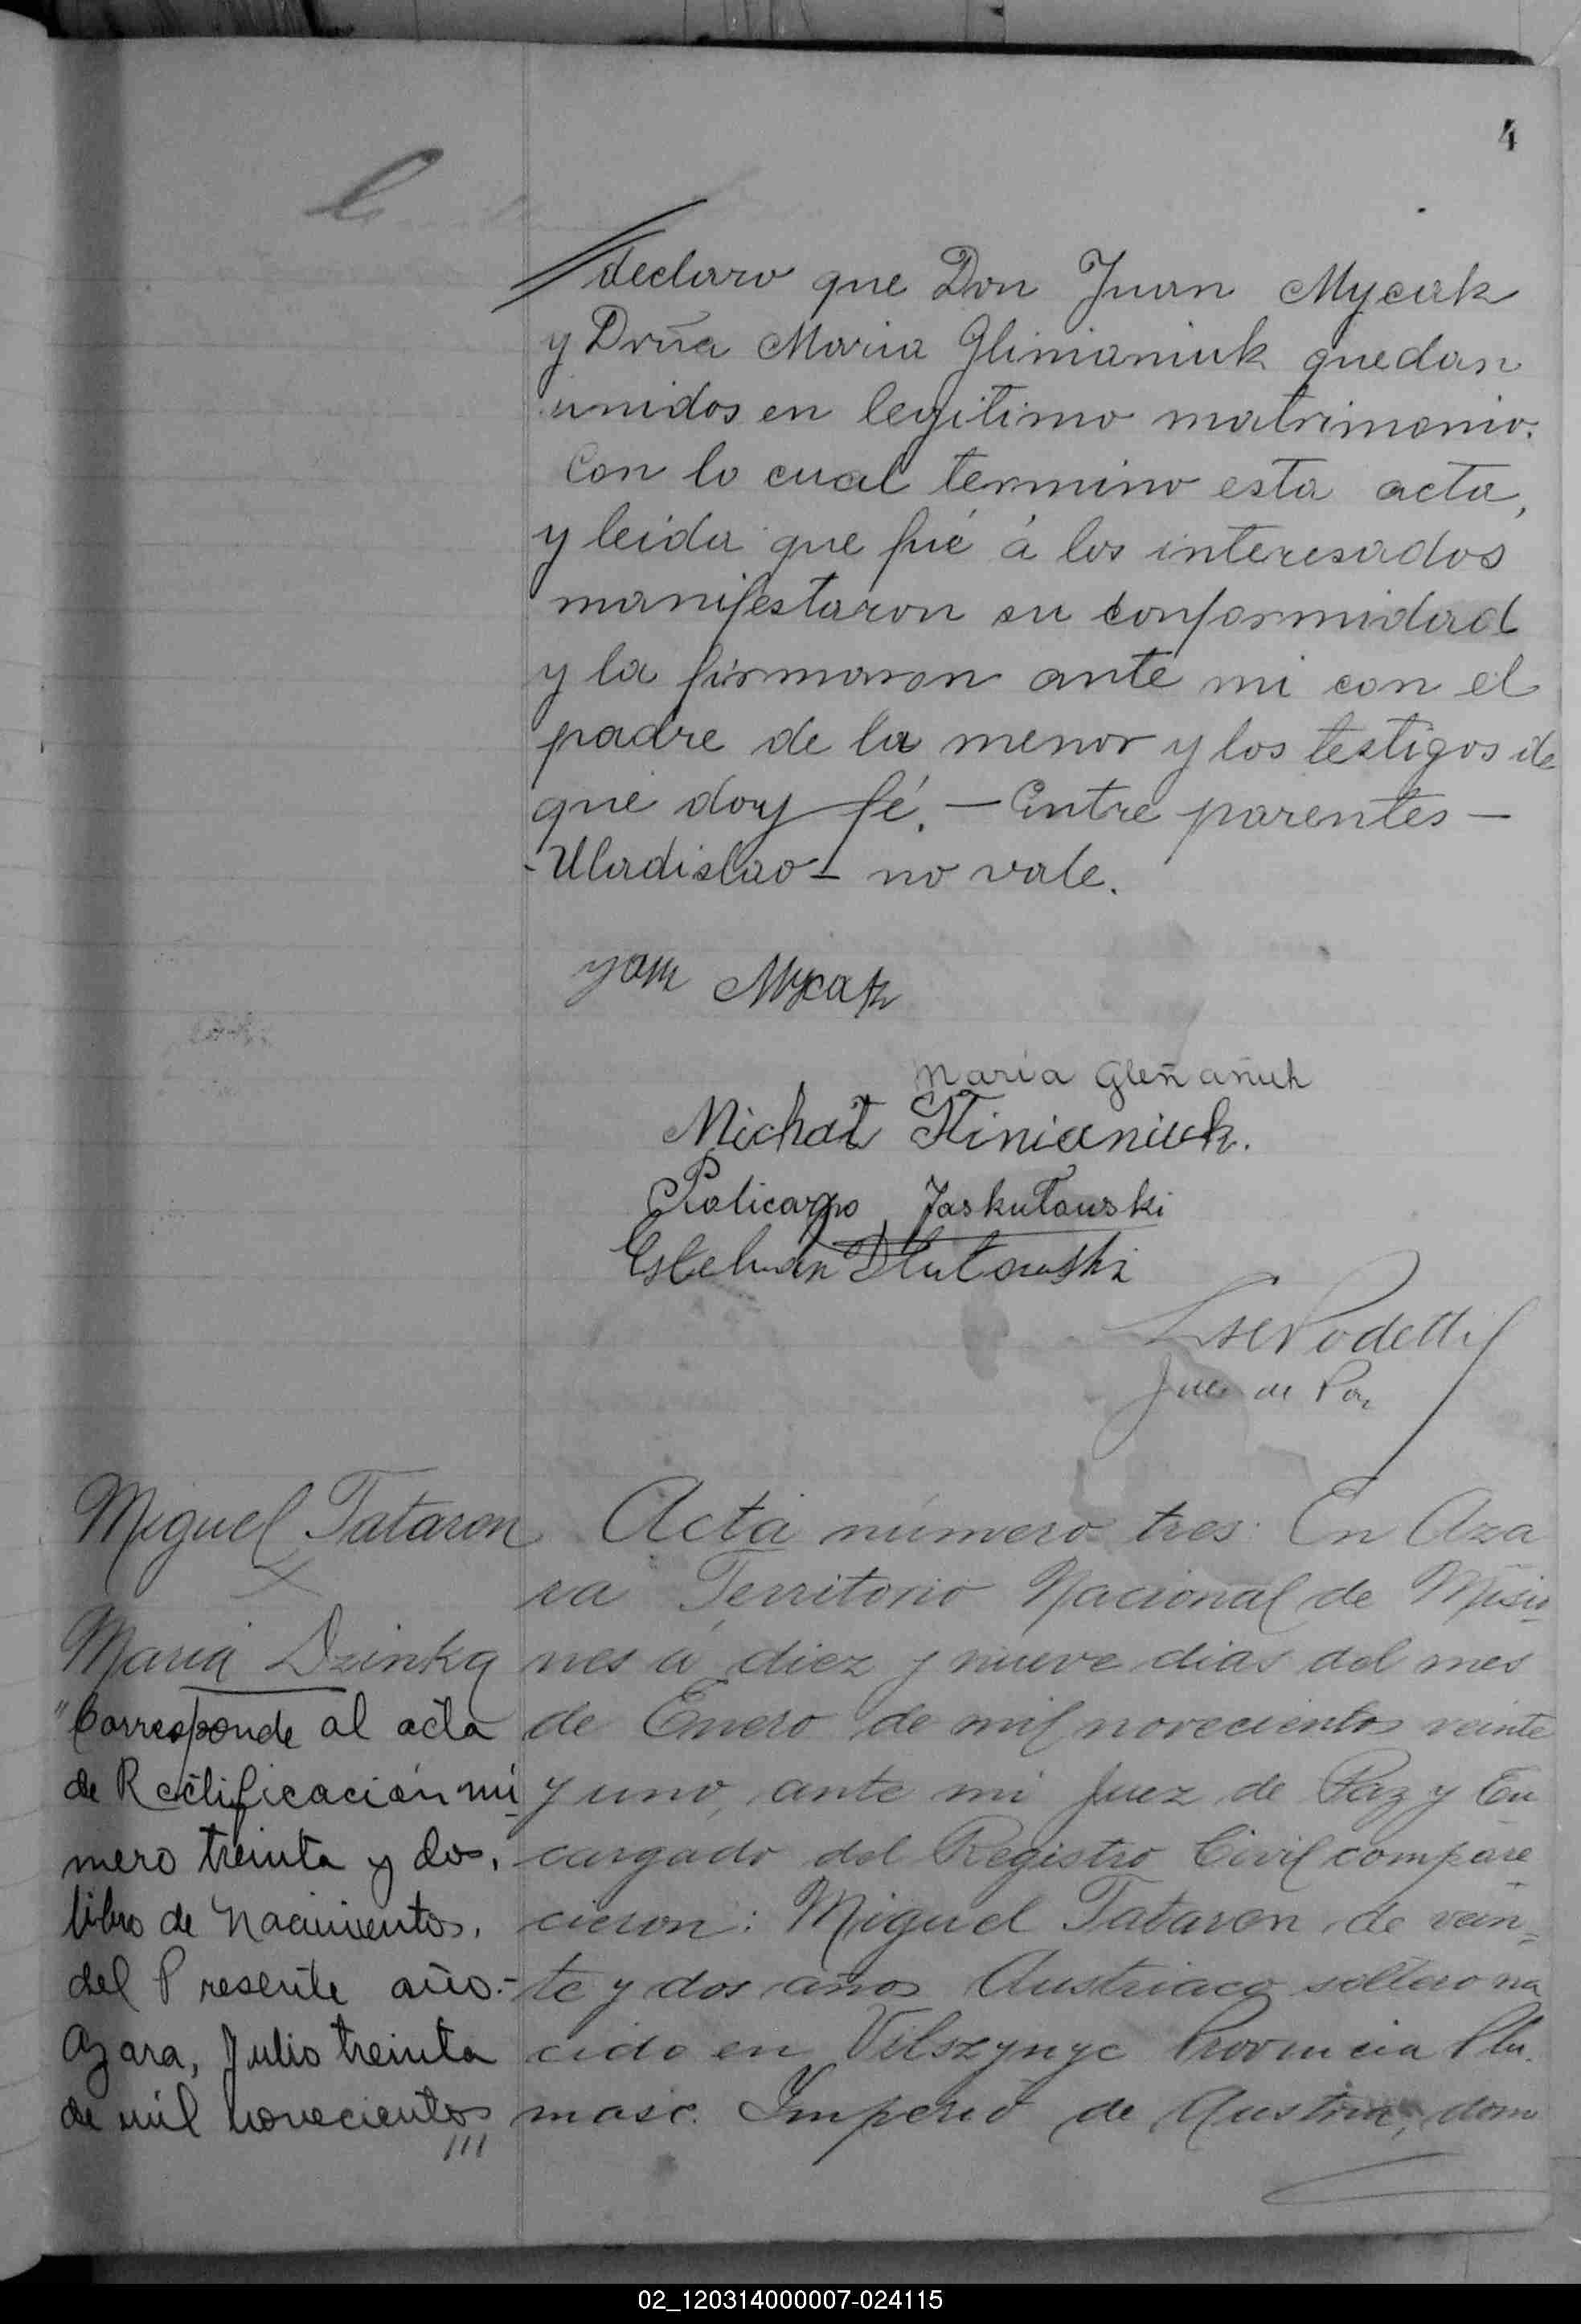 4
//declaro que Don Juan Mycak
y Doña Maria Glinianiuk quedan
unidos en legitimo matrimonio.
Con lo cual termino esta acta,
y leida que fué á los interesados
manifestaron su conformidad
y la firmaron ante mi con el
padre de la menor y los testigos de
que doy fé. — Entre parentes —
- Uladislao - no vale.
Mycak
Maria Gleñañuk
Michał Hliniањiuk.
Policarpo Jaskułowski
Esteban Dlutowski
Juez de Paz
Miguel Tataren
x
Maria Dzinka
"Corresponde al acta
de Rectificación nú
mero treinta y dos,
libro de Nacimientos,
del Presente año.-
Azara, Julio treinta
de mil novecientos
///
Acta número tres. En Aza
ra Territorio Nacional de Misio
nes á diez y nueve dias del mes
de Enero de mil novecientos veinte
y uno, ante mi Juez de Paz y En
cargado del Registro Civil compare
cieron: Miguel Tataren de vein=
te y dos años Austriaco soltero na
cido en Vilszynyc Provincia Plu
masc. Imperio de Austria, domi
02_120314000007-024115